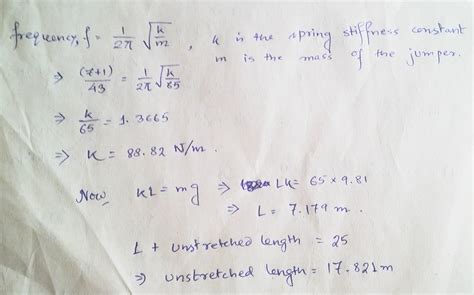 frequency, f = 1/2π √(k/m) , k is the spring stiffness constant
m is the mass of the jumper.
⇒ (7+1)/43 = 1/2π √(k/65)
⇒ k/65 = 1.3665
⇒ K = 88.82 N/m .
Now, kL = mg ⇒ Lk = 65 × 9.81
⇒ L = 7.179 m .
L + unstretched length = 25
⇒ unstretched length = 17.821m